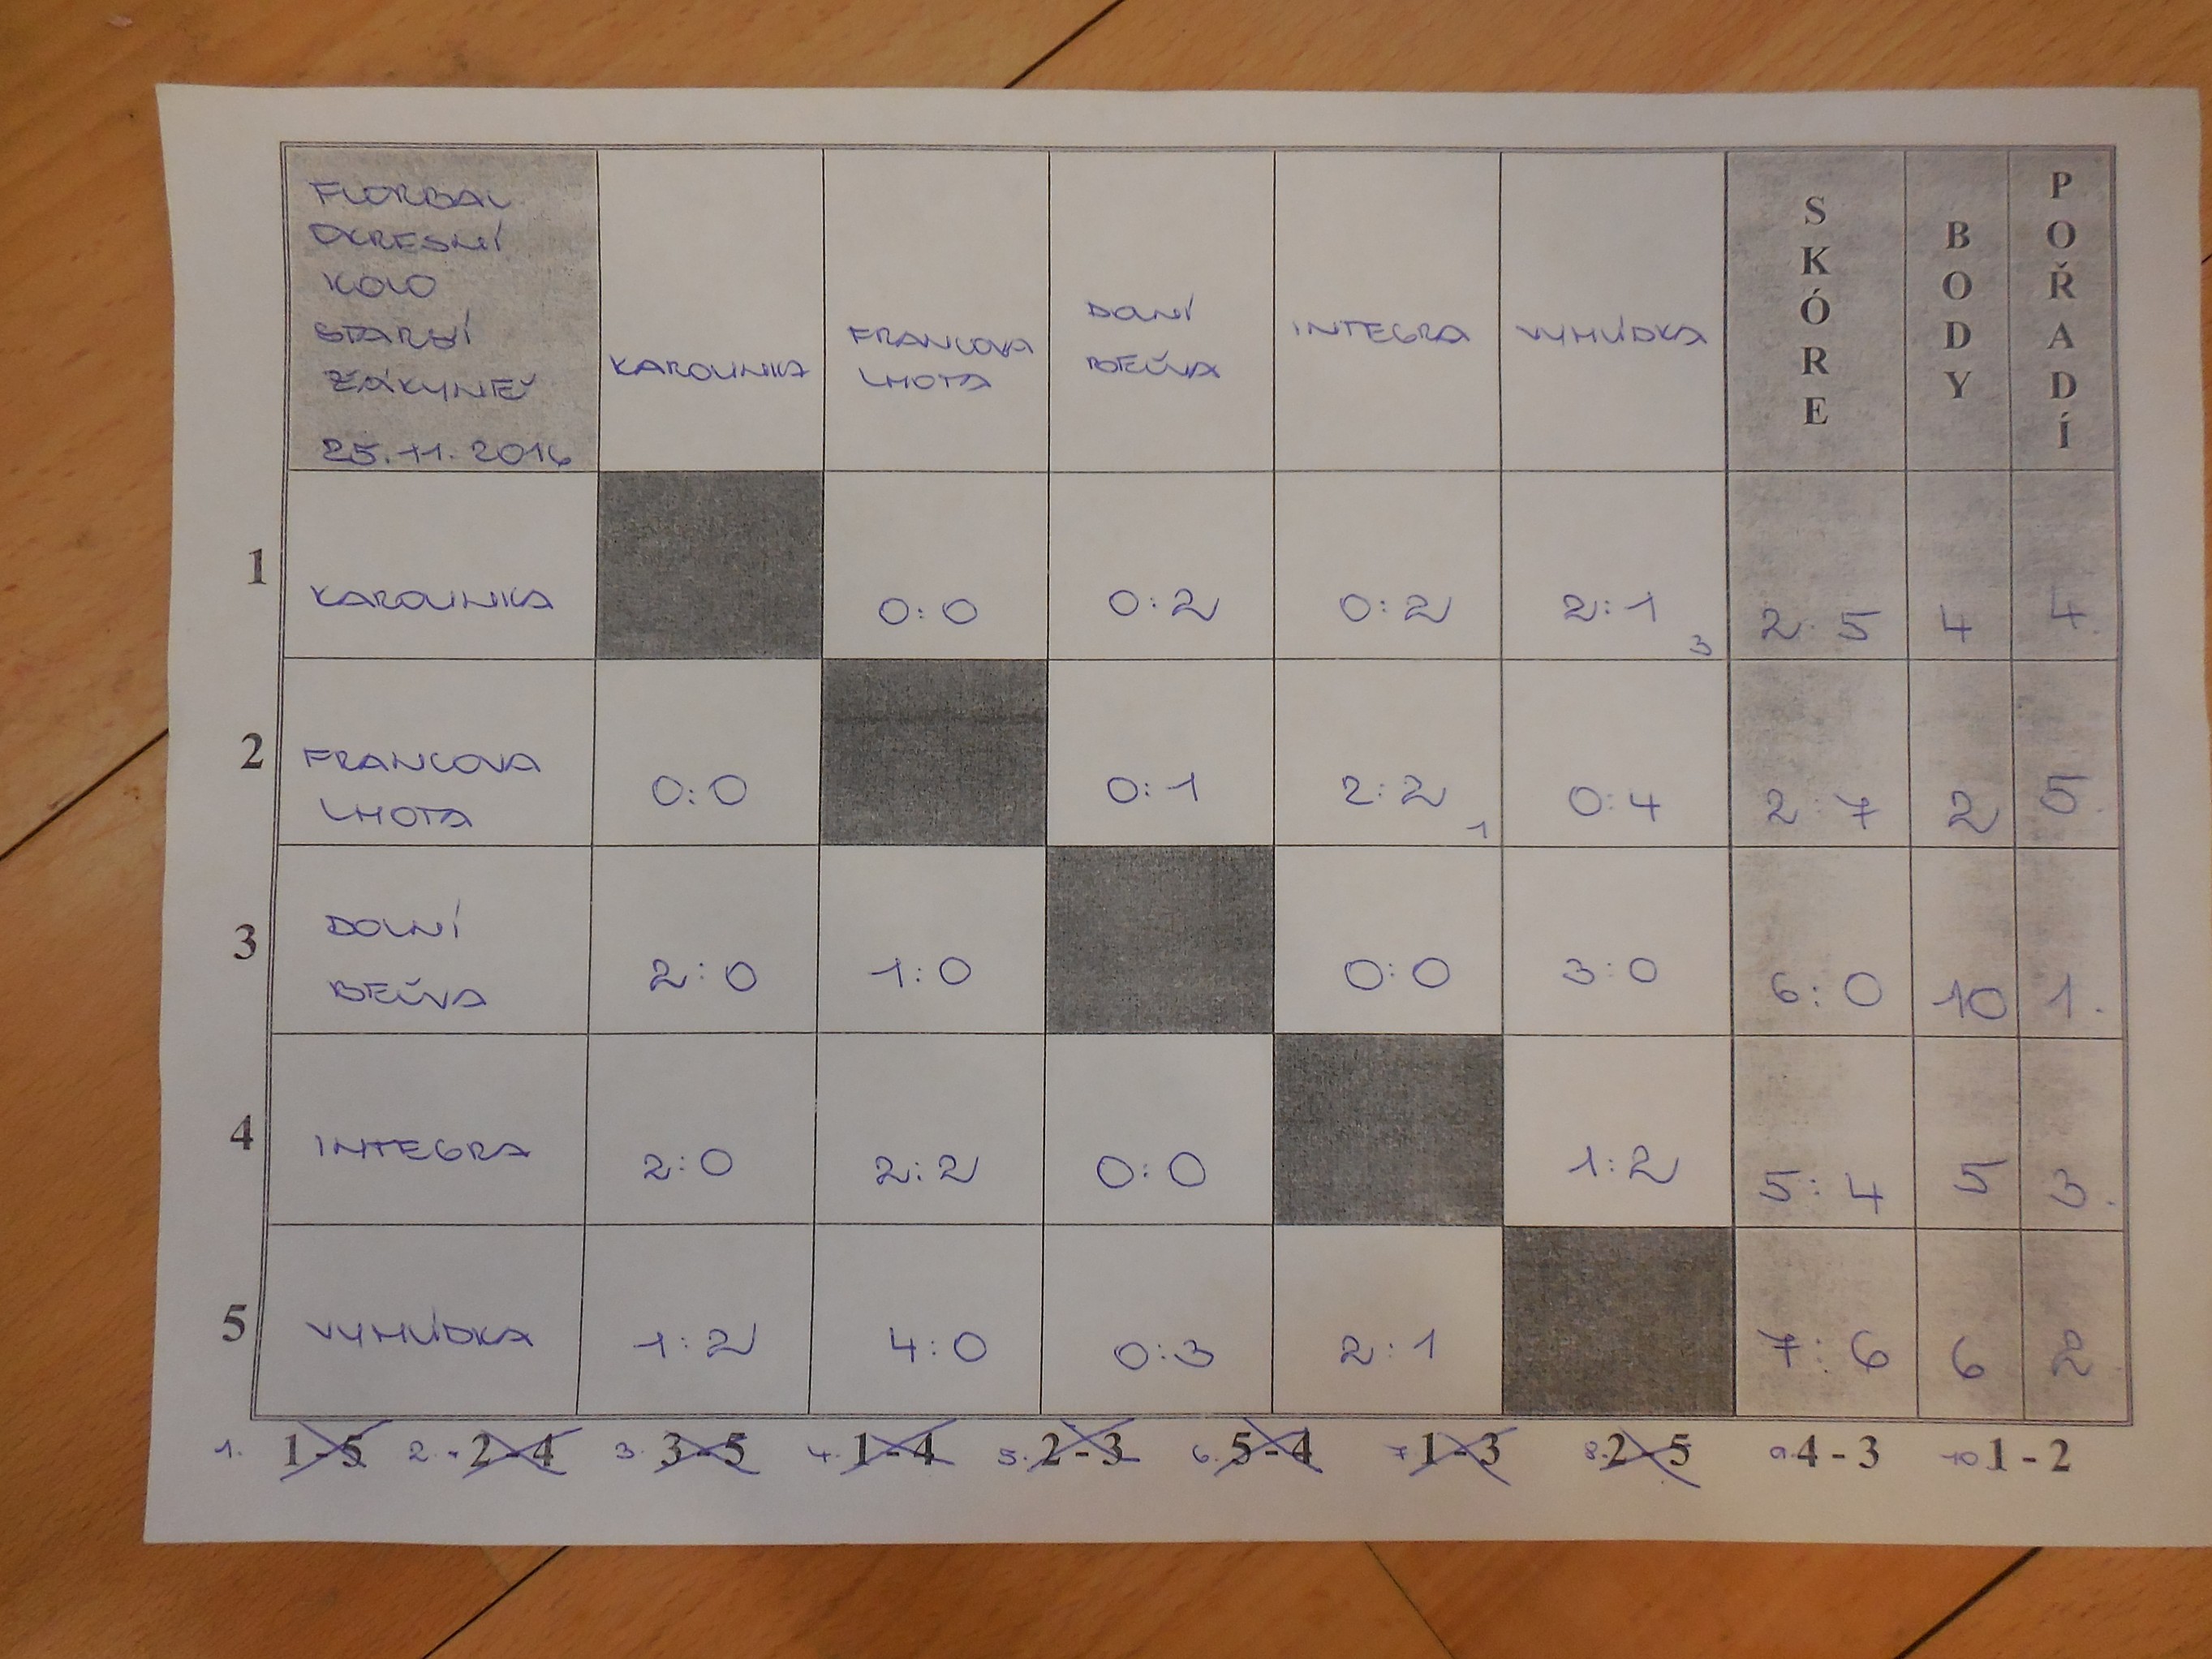 FLORBAL
OKRESNÍ
KOLO
STARŠÍ
ŽÁKYNĚ
25.11.2016
KAROLINKA
FRANCOVA
LHOTA
DOLNÍ
BEČVA
INTEGRA
VYHLÍDKA
SKÓRE
BODY
POŘADÍ
1 KAROLINKA 0:0 0:2 0:2 2:1 3 2:5 4 4.
2 FRANCOVA
LHOTA 0:0 0:1 2:2 1 0:4 2:7 2 5.
3 DOLNÍ
BEČVA 2:0 1:0 0:0 3:0 6:0 10 1.
4 INTEGRA 2:0 2:2 0:0 1:2 5:4 5 3.
5 VYHLÍDKA 1:2 4:0 0:3 2:1 7:6 6 2.
1. 1-5 2. 2-4 3. 3-5 4. 1-4 5. 2-3 6. 5-4 7. 1-3 8. 2-5 9. 4-3 10. 1-2